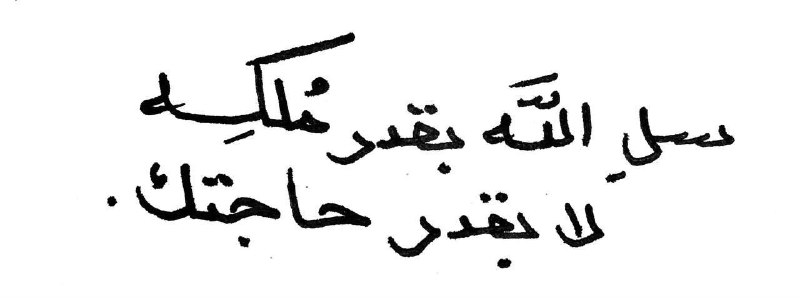 سلِ اللَّه بقدر مُلكِه
لا بقدر حاجتك.